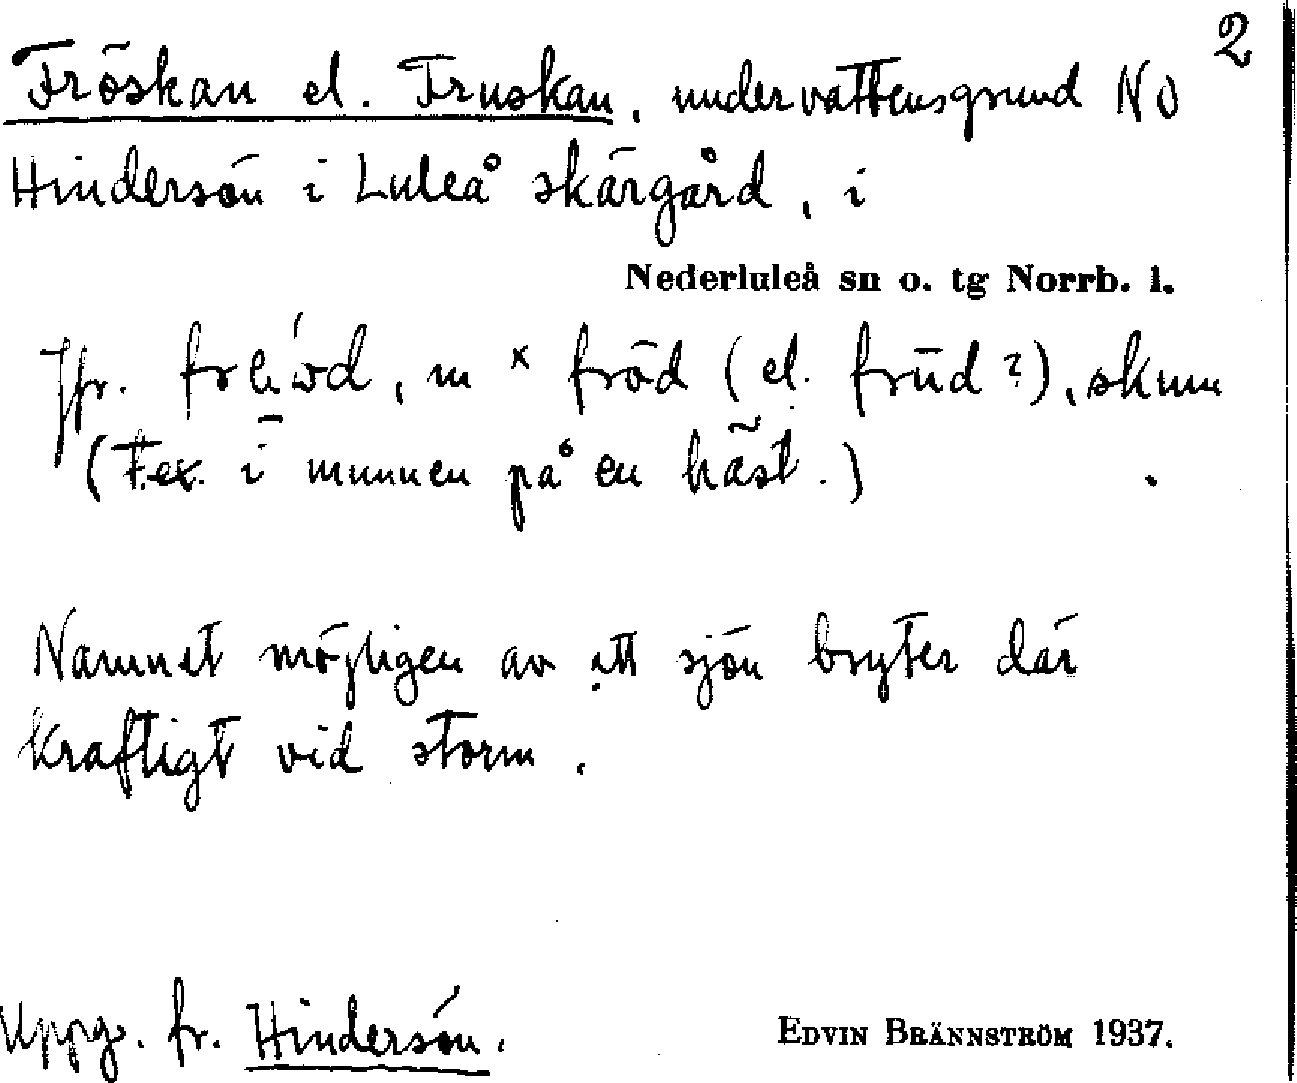 2
Fröskan el. Fruskan, undervattensgrund NO
Hindersön i Luleå skärgård, i
Nederluleå sn o. tg Norrb. l.
Jfr. , m × fröd (el. frūd?), skum
(T.ex. i munnen på en häst.)
Namnet möjligen av att sjön bryter där
kraftigt vid storm.
Uppg. fr. Hindersön.
EDVIN BRÄNNSTRÖM 1937.